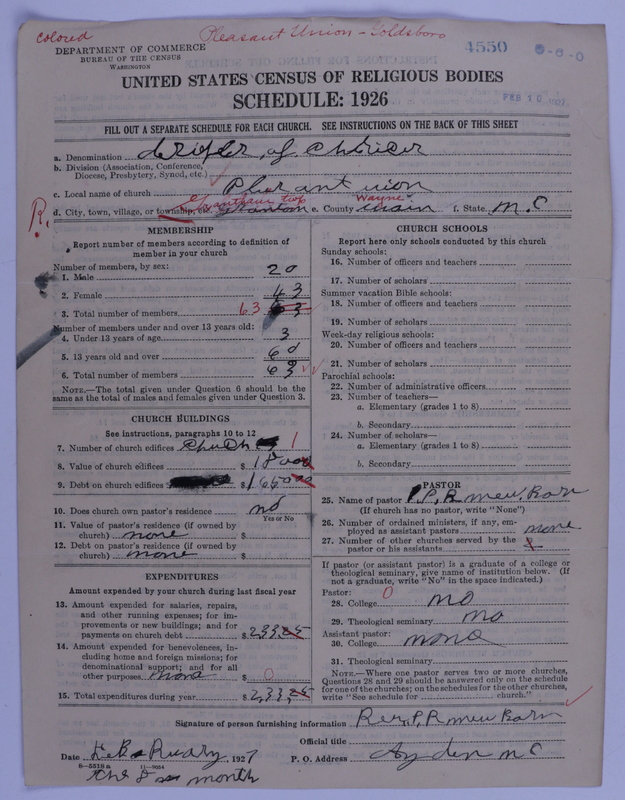 Colored
Pleasant Union - Goldsboro
DEPARTMENT OF COMMERCE
BUREAU OF THE CENSUS
WASHINGTON
4550
8-6-0
UNITED STATES CENSUS OF RELIGIOUS BODIES
SCHEDULE: 1926
FEB 10 1927
FILL OUT A SEPARATE SCHEDULE FOR EACH CHURCH. SEE INSTRUCTIONS ON THE BACK OF THIS SHEET
a. Denomination of
b. Division (Association, Conference,
Diocese, Presbytery, Synod, etc.)
c. Local name of church Plesant union
d. City, town, village, or township, etc. Grantham twp e. County Wayne f. State N.C
R.
MEMBERSHIP
Report number of members according to definition of
member in your church
Number of members, by sex:
1. Male 20
2. Female 43
3. Total number of members 63 63
Number of members under and over 13 years old:
4. Under 13 years of age 3
5. 13 years old and over 60
6. Total number of members 63
NOTE.—The total given under Question 6 should be the
same as the total of males and females given under Question 3.
CHURCH BUILDINGS
See instructions, paragraphs 10 to 12
7. Number of church edifices church 1
8. Value of church edifices $
9. Debt on church edifices $
10. Does church own pastor's residence no
Yes or No
11. Value of pastor's residence (if owned by
church) none $
12. Debt on pastor's residence (if owned by
church) none $
EXPENDITURES
Amount expended by your church during last fiscal year
13. Amount expended for salaries, repairs,
and other running expenses; for im-
provements or new buildings; and for
payments on church debt $ 233 25
14. Amount expended for benevolences, in-
cluding home and foreign missions; for
denominational support; and for all
other purposes none $ 0
15. Total expenditures during year $ 233 25
CHURCH SCHOOLS
Report here only schools conducted by this church
Sunday schools:
16. Number of officers and teachers
17. Number of scholars
Summer vacation Bible schools:
18. Number of officers and teachers
19. Number of scholars
Week-day religious schools:
20. Number of officers and teachers
21. Number of scholars
Parochial schools:
22. Number of administrative officers
23. Number of teachers—
a. Elementary (grades 1 to 8)
b. Secondary
24. Number of scholars—
a. Elementary (grades 1 to 8)
b. Secondary
PASTOR
25. Name of pastor P. R mew Born
(If church has no pastor, write "None")
26. Number of ordained ministers, if any, em-
ployed as assistant pastors none
27. Number of other churches served by the
pastor or his assistants
If pastor (or assistant pastor) is a graduate of a college or
theological seminary, give name of institution below. (If
not a graduate, write "No" in the space indicated.)
Pastor: 0
28. College no
29. Theological seminary no
Assistant pastor:
30. College none
31. Theological seminary
NOTE.—Where one pastor serves two or more churches,
Questions 28 and 29 should be answered only on the schedule
for one of the churches; on the schedules for the other churches,
write "See schedule for church."
Signature of person furnishing information Rev. P. R mew Born
Official title
Date , 1927 P. O. Address Ayden N C
6—5518 a 11—9054
month